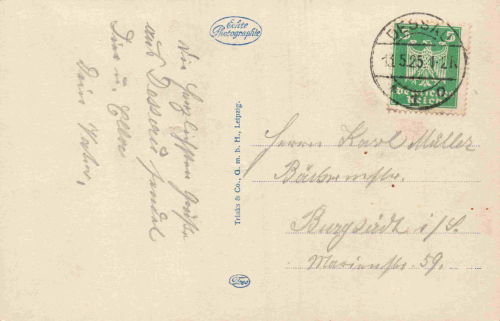 Echte
Photographie
Die herzlichsten Grüße
aus Dessau sendet
Dir u. Ellen
Dein Vater.
Trinks & Co., G. m. b. H., Leipzig.
DESSAU
13.5.25.
5
5
Deutsches
Reich
Herrn Karl Müller
Bäckermstr.
Burgstädt i/S.
Marienstr. 59.